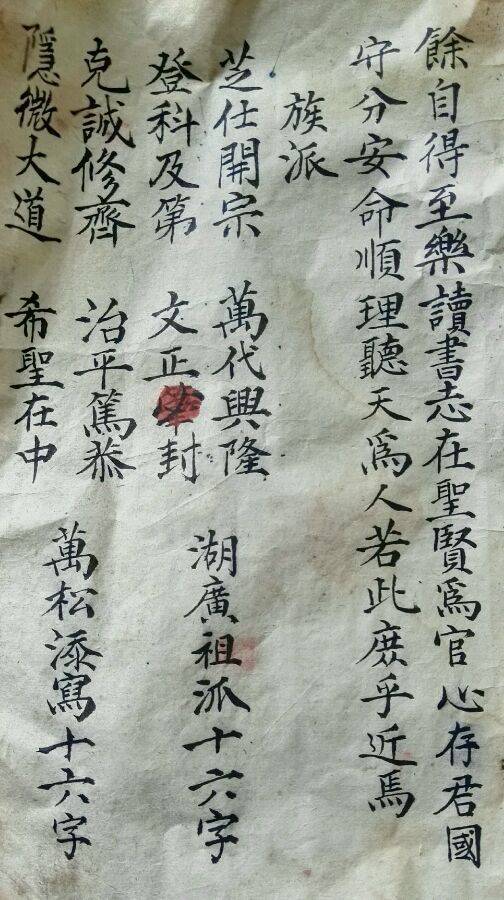 餘自得至樂讀書志在聖賢爲官心存君國
守分安命順理聽天爲人若此庶乎近焉
族派
芝仕開宗 萬代興隆
湖廣祖派十六字
登科及第 文正封
克誠修齊 治平篤恭
隱微大道 希聖在中
萬松添寫十六字